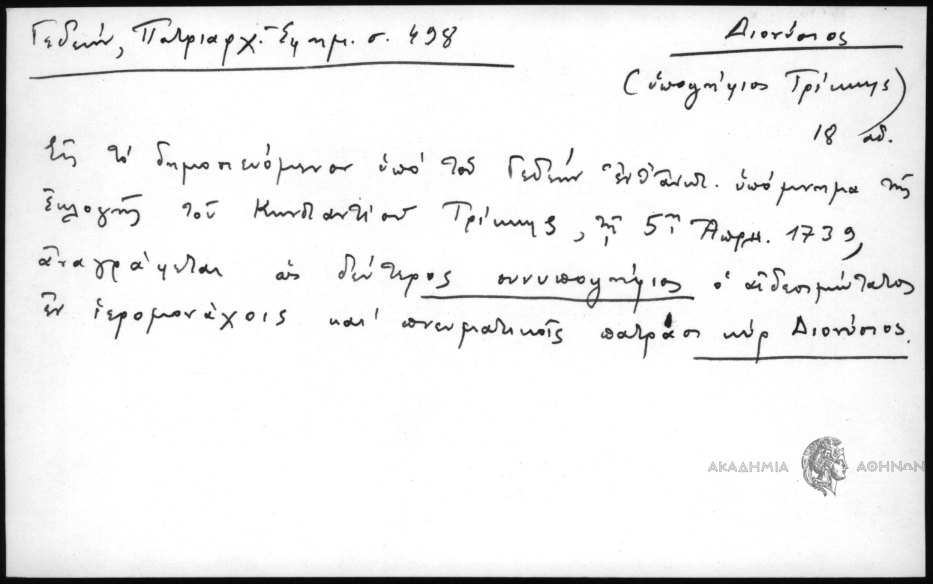 Γεδεών, Πατριαρχ. Ἐφημ. σ. 498
Διονύσιος
(ὑποψήφιος Τρίκκης)
18 αἰ.
Εἰς τὸ δημοσιευόμενον ὑπὸ τοῦ Γεδεὼν ἐνθ' ἀνωτ. ὑπόμνημα τῆς
ἐκλογῆς τοῦ Κωνσταντίου Τρίκκης, τῇ 5ῃ Ἀπρ. 1739,
ἀναγράφεται ὡς δεύτερος συνυποψήφιος ὁ αἰδεσιμώτατος
ἐν ἱερομονάχοις καὶ πνευματικοῖς πατράσι κὺρ Διονύσιος.
ΑΚΑΔΗΜΙΑ ΑΘΗΝΩΝ